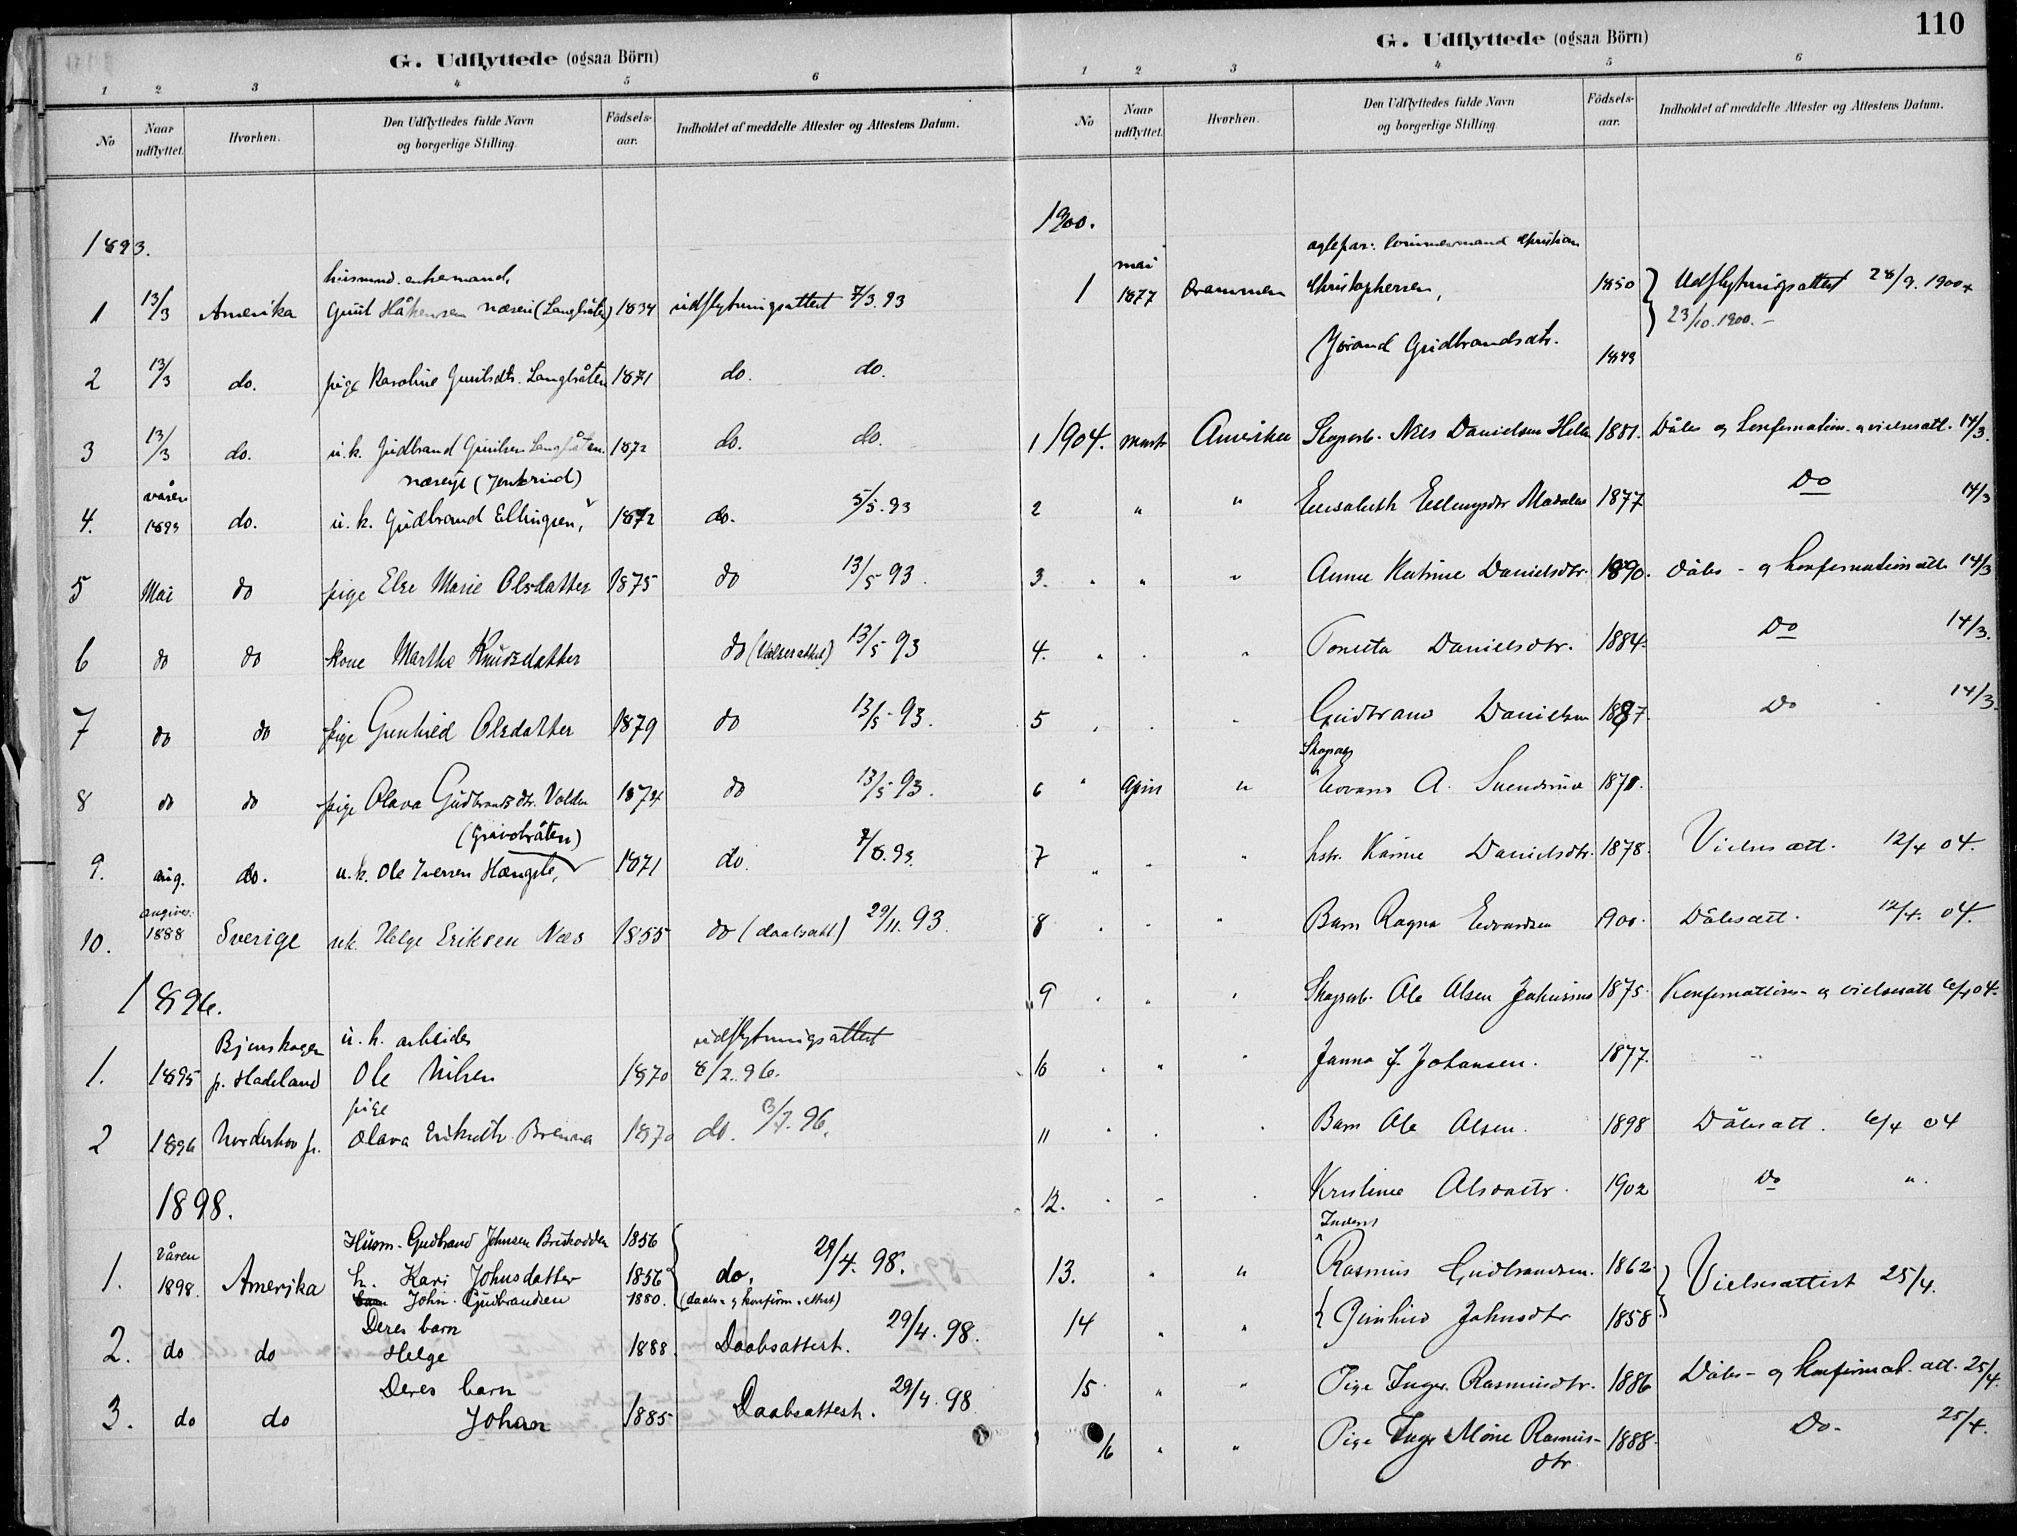 G. Udflyttede (ogsaa Börn)
1 2 3 4 5 6
No Naar udflyttet. Hvorhen. Den Udflyttedes fulde Navn og borgerlige Stilling. Födsels-aar. Indholdet af meddelte Attester og Attestens Datum.
1893.
husmand enkemand,
1 13/3 Amerika Guul Håkensen næseie (Langbråten) 1834 udflytningsattest 7/3.93
2 13/3 do. pige Karoline Guulsdtr. Langbråten 1871 do. do.
3 13/3 do. u.k. Gudbrand Guulsen Langbråten. 1872 do. do.
næseje (Jenkrud)
4. våren 1893 do. u.k. Gudbrand Ellingsen, 1872 do. 5/5.93
5 Mai do pige Else Marie Olsdatter 1875 do 13/5 93.
6 do do kone Marthe Knudsdatter do (Vielsesattest) 13/5 93
7 do do pige Gunhild Olsdatter 1879 do 13/5 93.
8 do do pige Olava Gudbrandsdtr. Volden 1874 do 13/5 93.
9. aug. do. u.k. Ole Iversen Hængsle, 1871 do. 7/8.93
10. angives: 1888 Sverige uk. Helge Eriksen Næs 1855 do (daabsatt) 29/11.93.
1896.
Bjønskogen u.k. arbeider udflytningsattest
1. 1895 p. Hadeland Ole Nilsen 1870 8/2.96.
pige
2 1896 Norderhov p. Olava Eriksdtr. Brenna 1870 do. 3/7.96.
1898.
Husm. Gudbrand Johnsen Briskodden 1856
1. Våren 1898. Amerika h. Kari Johnsdatter 1856 do. 29/4.98.
barn John Gudbrandsen 1880. (daabs- og konfirm. attest)
Deres barn
2. do do Helge 1888. Daabsattest. 29/4.98.
Deres barn
3. do do Johan 1885 Daabsattest. 29/4.98
110
G. Udflyttede (ogsaa Börn)
1 2 3 4 5 6
No Naar udflyttet. Hvorhen. Den Udflyttedes fulde Navn og borgerlige Stilling. Födsels-aar. Indholdet af meddelte Attester og Attestens Datum.
1900.
ægtepar: tømmermand Christian
1 mai 1877 Drammen Christophersen, 1850 Udflytningsattest 28/9.1900 +
23/10.1900.-
Jørand Gudbrandsdtr. 1849
1 1904. Marts Amerika Skogsarb. Nils Danielsen 1881. Dåbs og konfirmation. og vielsesatt. 14/3.
2 " " Elisabeth Ellingsdtr 1877 Do 14/3
3. " " Anne Katrine Danielsdtr. 1890. Dåbs- og konfirmationsatt. 14/3
4. Tonetta Danielsdtr. 1884. Do 14/3.
5 Gudbrand Danielsen 1887. Do 14/3.
Skogsarb
6 " April " Edvard A. 1870.
7 " " hstr. Karine Danielsdtr. 1878. Vielses att. 12/4 04.
8 " Barn Ragna Edvardsen 1900. Dåbsatt. 12/4. 04.
9 " Skogsarb. Ole Olsen 1875. Konfirmations- og vielsesatt 6/4 04.
10 " Janna J. Johansen. 1877.
11 Barn Ole Olsen. 1898 Dåbsatt. 6/4 04
12. Kristine Olsdatr. 1902 Do "
Inderst
13. " " Rasmus Gudbrandsen. 1862. Vielsesattest 25/4.
14 " " Gunhild Johnsdtr 1858
15 " " Pige Inger Rasmusdtr. 1886 Dåbs- og konfirmat. att. 25/4.
16 " " Pige Inger Marie Rasmus- 1888. Do. 25/4.
dtr.